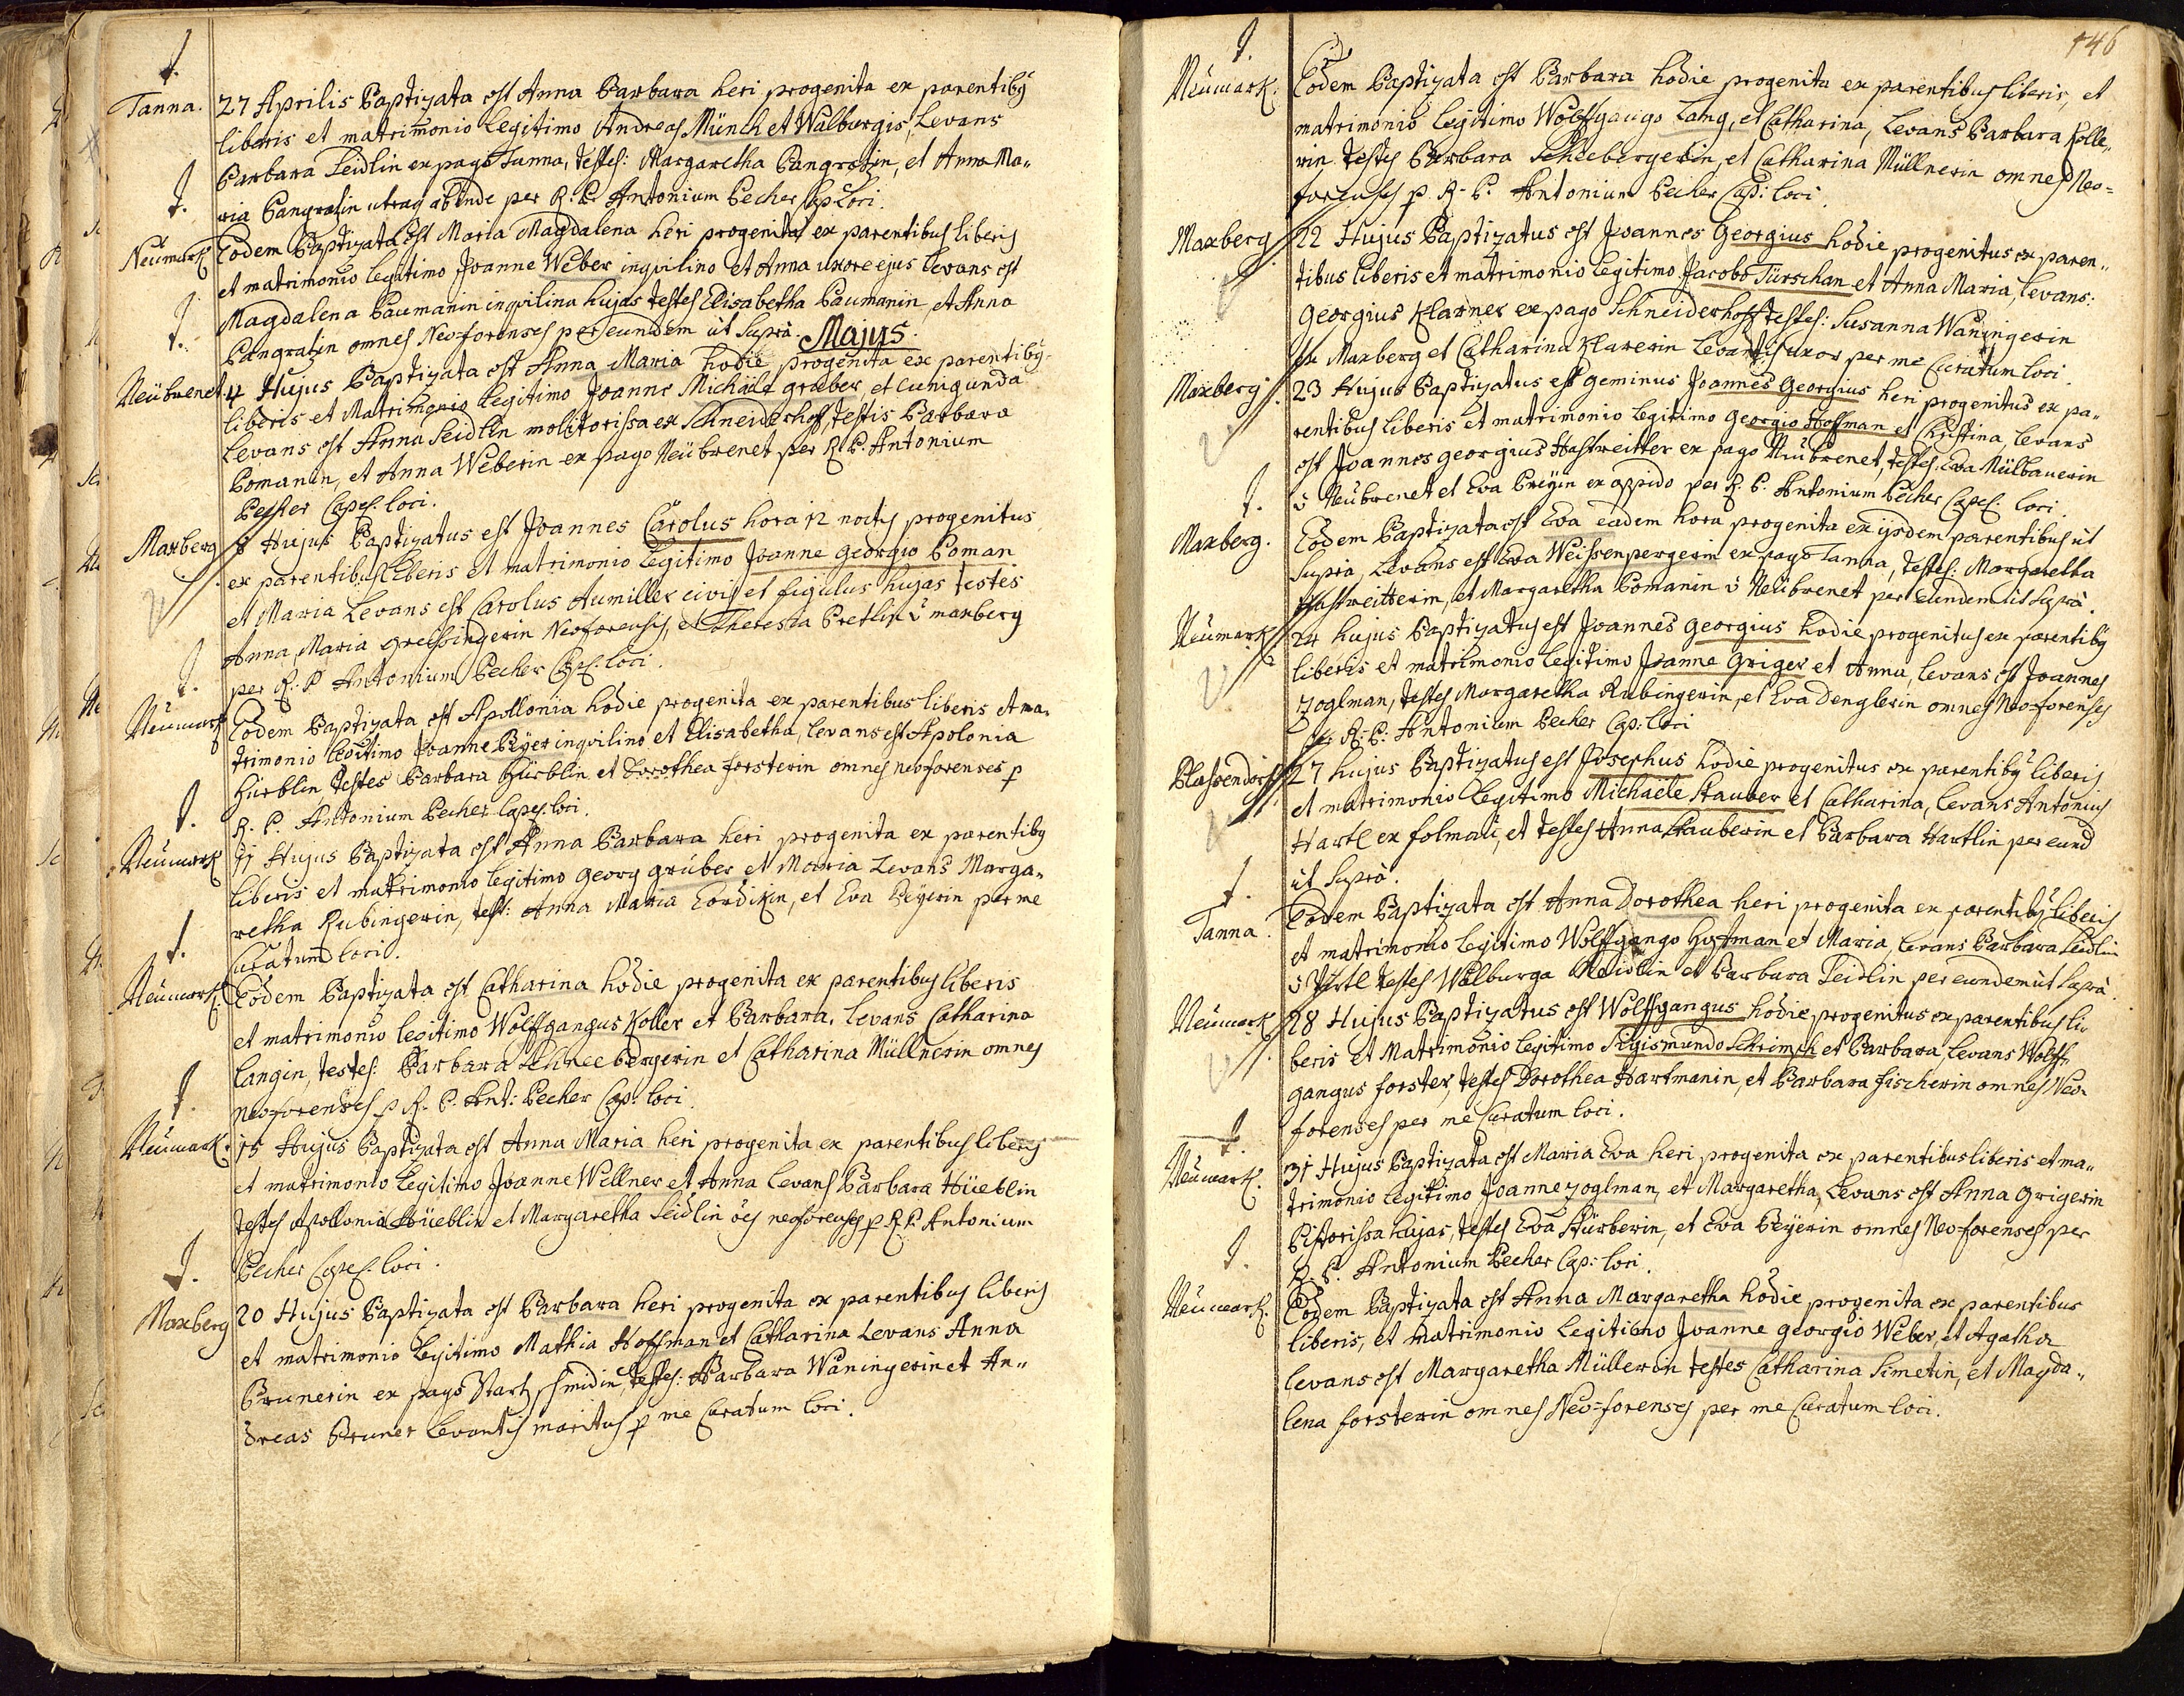 Tanna. 27 Aprilis Baptizata est Anna Barbara heri progenita ex parentibỹ
liberis et matrimonio legitimo Andreas Münch et Walburgis, Levans
Barbara Seidlin ex pago Tanna, testes: Margaretha Pangratin, et Anna Ma„
ria Pangratin utraq abinde per R: P: Antonium Pecher Cap: Loci.
Neumark Eodem Baptizata est Maria Magdalena heri progenita ex parentibus liberis
et matrimonio legitimo Joanne Weber inqvilino et Anna uxore ejus Levans est
Magdalena Paumanin inqvilina hujas testes Elisabetha Paumanin et Anna
Pangratin omnes Neo-forenses per eundem ut Suprà. Majus.
Neübrenet 4 Hujus Baptizata est Anna Maria hodie progenita ex parentibỹ
liberis et Matrimonio legitimo Joanne Michäele graber, et Cunigunda
Levans est Anna Seidlin molitorissa ex Schneiderhoff, testis Barbara
Pomanin, et Anna Weberin ex pago Neübrenet per R: P: Antonium
Pecher Capel: loci.
Maxberg 8 Hujus Baptizatus est Joannes Carolus hora 12 noctis progenitus
ex parentibus Liberis et matrimonio Legitimo Joanne georgio Poman
et Maria Levans est Carolus Aumiller civis et figulus hujas testes
Anna Maria greissingerin Neoforensis, et Theresia Pretlin v̄ maxberg
per R: P Antonium Pecher Capel: loci.
Neumark Eodem Baptizata est Apollonia hodie progenita ex parentibus liberis et ma„
trimonio legitimo Joanne Peÿer inqvilino et Elisabetha, levans est Apolonia
Hüeblin testes Barbara Hüeblin et Dorothea forsterin omnes neoforenses p
R. P. Antonium Pecher Capel: loci.
Neumark 11 Hujus Baptizata est Anna Barbara heri progenita ex parentibỹ
liberis et matrimonio legitimo georg grüber et Maria Levans Marga„
retha Rubingerin, test: Anna Maria Lordikin, et Eva Peÿerin per me
Curatum loci.
Neumark Eodem Baptizata est Catharina hodie progenita ex parentibus liberis
et matrimonio legitimo Wolffgangus Koller et Barbara. Levans Catharina
Langin, testes: Barbara Schneebergerin et Catharina Müllnerin omnes
neo-forenses p R. P. Ant: Pecher Cap: loci.
Neumark. 15 Hujus Baptizata est Anna Maria heri progenita ex parentibus liberis
et matrimonio Legitimo Joanne Wellner et Anna Levans Barbara Hüeblin
testes Apollonia Hüeblin et Margaretha Seidlin ões neoforenses p R. P. Antonium
Pecher Capel: loci.
Maxberg 20 Hujus Baptizata est Barbara heri progenita ex parentibus liberis
et matrimonio Legitimo Mathia Hoffman et Catharina Levans Anna
Prunerin ex pago Starzschmidin, testes: Barbara Waningerin et An„
dreas Pruner Levantis maritus p me Curatum loci.
146
Neumark. Eodem Baptizata est Barbara hodie progenita ex parentibus liberis, et
matrimonio legitimo Wolffgango Lang, et Catharina, Levans Barbara Kolle„
rin testes Barbara Schnebergerin, et Catharina Müllnerin omnes Neo=
forenses p R. P. Antonium Pecher Cap: loci.
Maxberg 22 Hujus Baptizatus est Joannes Georgius hodie progenitus ex paren„
tibus liberis et matrimonio legitimo Jacobo Türschan et Anna Maria, levans:
Georgius Klarner ex pago Schneiderhoff testes: Susanna Waningerin
ex Maxberg et Catharina Klarerin Levantis uxor per me Curatum loci.
Maxberg 23 Hujus Baptizatus est geminus Joannes Georgius heri progenitus ex pa„
rentibus liberis et matrimonio legitimo Georgio Hoffman et Christina, levans
est Joannes georgius Hastreitter ex pago Neübrenet, testes: Eva Mülbauerin
v̄ Neübrenet et Eva Preÿin ex oppido per R. P. Antonium Pecher Capel: loci.
Maxberg. Eodem Baptizata est Eva eadem hora progenita ex ijsdem parentibus ut
Supra, Levans est Eva Weissenpergerin ex pago Tanna, testes: Margaretha
Hastreitterin, et Margaretha Pomanin v̄ Neübrenet per eundem ut Suprà.
Neumark 24 hujus Baptizatus est Joannes georgius hodie progenitus ex parentibỹ
liberis et matrimonio legitimo Joanne Griger et Anna, levans est Joannes
Zoglman, testes Margaretha Rubingerin, et Eva Denglerin omnes Neo-forenses
per R: P: Antonium Pecher Cap: loci
Plassendorf 27 hujus Baptizatus est Josephus hodie progenitus ex parentibỹ liberis
et matrimonio legitimo Michäele Stauber et Catharina, levans Antonius
Hartl ex folmau, et testes Anna Stauberin et Barbara Hartlin per eund
ut Suprà.
Tanna. Eodem Baptizata est Anna Dorothea heri progenita ex parentibỹ liberis
et matrimonio legitimo Wolffgango Hoffman et Maria, levans Barbara Seidlin
testes Walburga et Barbara Seidlin per eundem ut Suprà.
Neumark 28 Hujus Baptizatus est Wolffgangus hodie progenitus ex parentibus li„
beris et Matrimonio legitimo Sigismundo Schrimpf et Barbara, levans Wolff„
gangus forster, testes Dorothea Hartmanin, et Barbara fischerin omnes Neo„
forenses per me Curatum loci.
Neumark. 31 Hujus Baptizata est Maria Eva heri progenita ex parentibus liberis et ma„
trimonio legitimo Joanne zoglman, et Margaretha, Levans est Anna Grigerin
Pistorissa hujas, testes Eva Hürberin, et Eva Peÿerin omnes Neo-forenses per
R. P. Antonium Pecher Cap: loci.
Neumark. Eodem Baptizata est Anna Margaretha hodie progenita ex parentibus
liberis, et matrimonio Legitimo Joanne georgio Weber, et Agatha
levans est Margaretha Müllerin testes Catharina Simetin, et Magda„
lena forsterin omnes Neo=forenses per me Curatum loci.